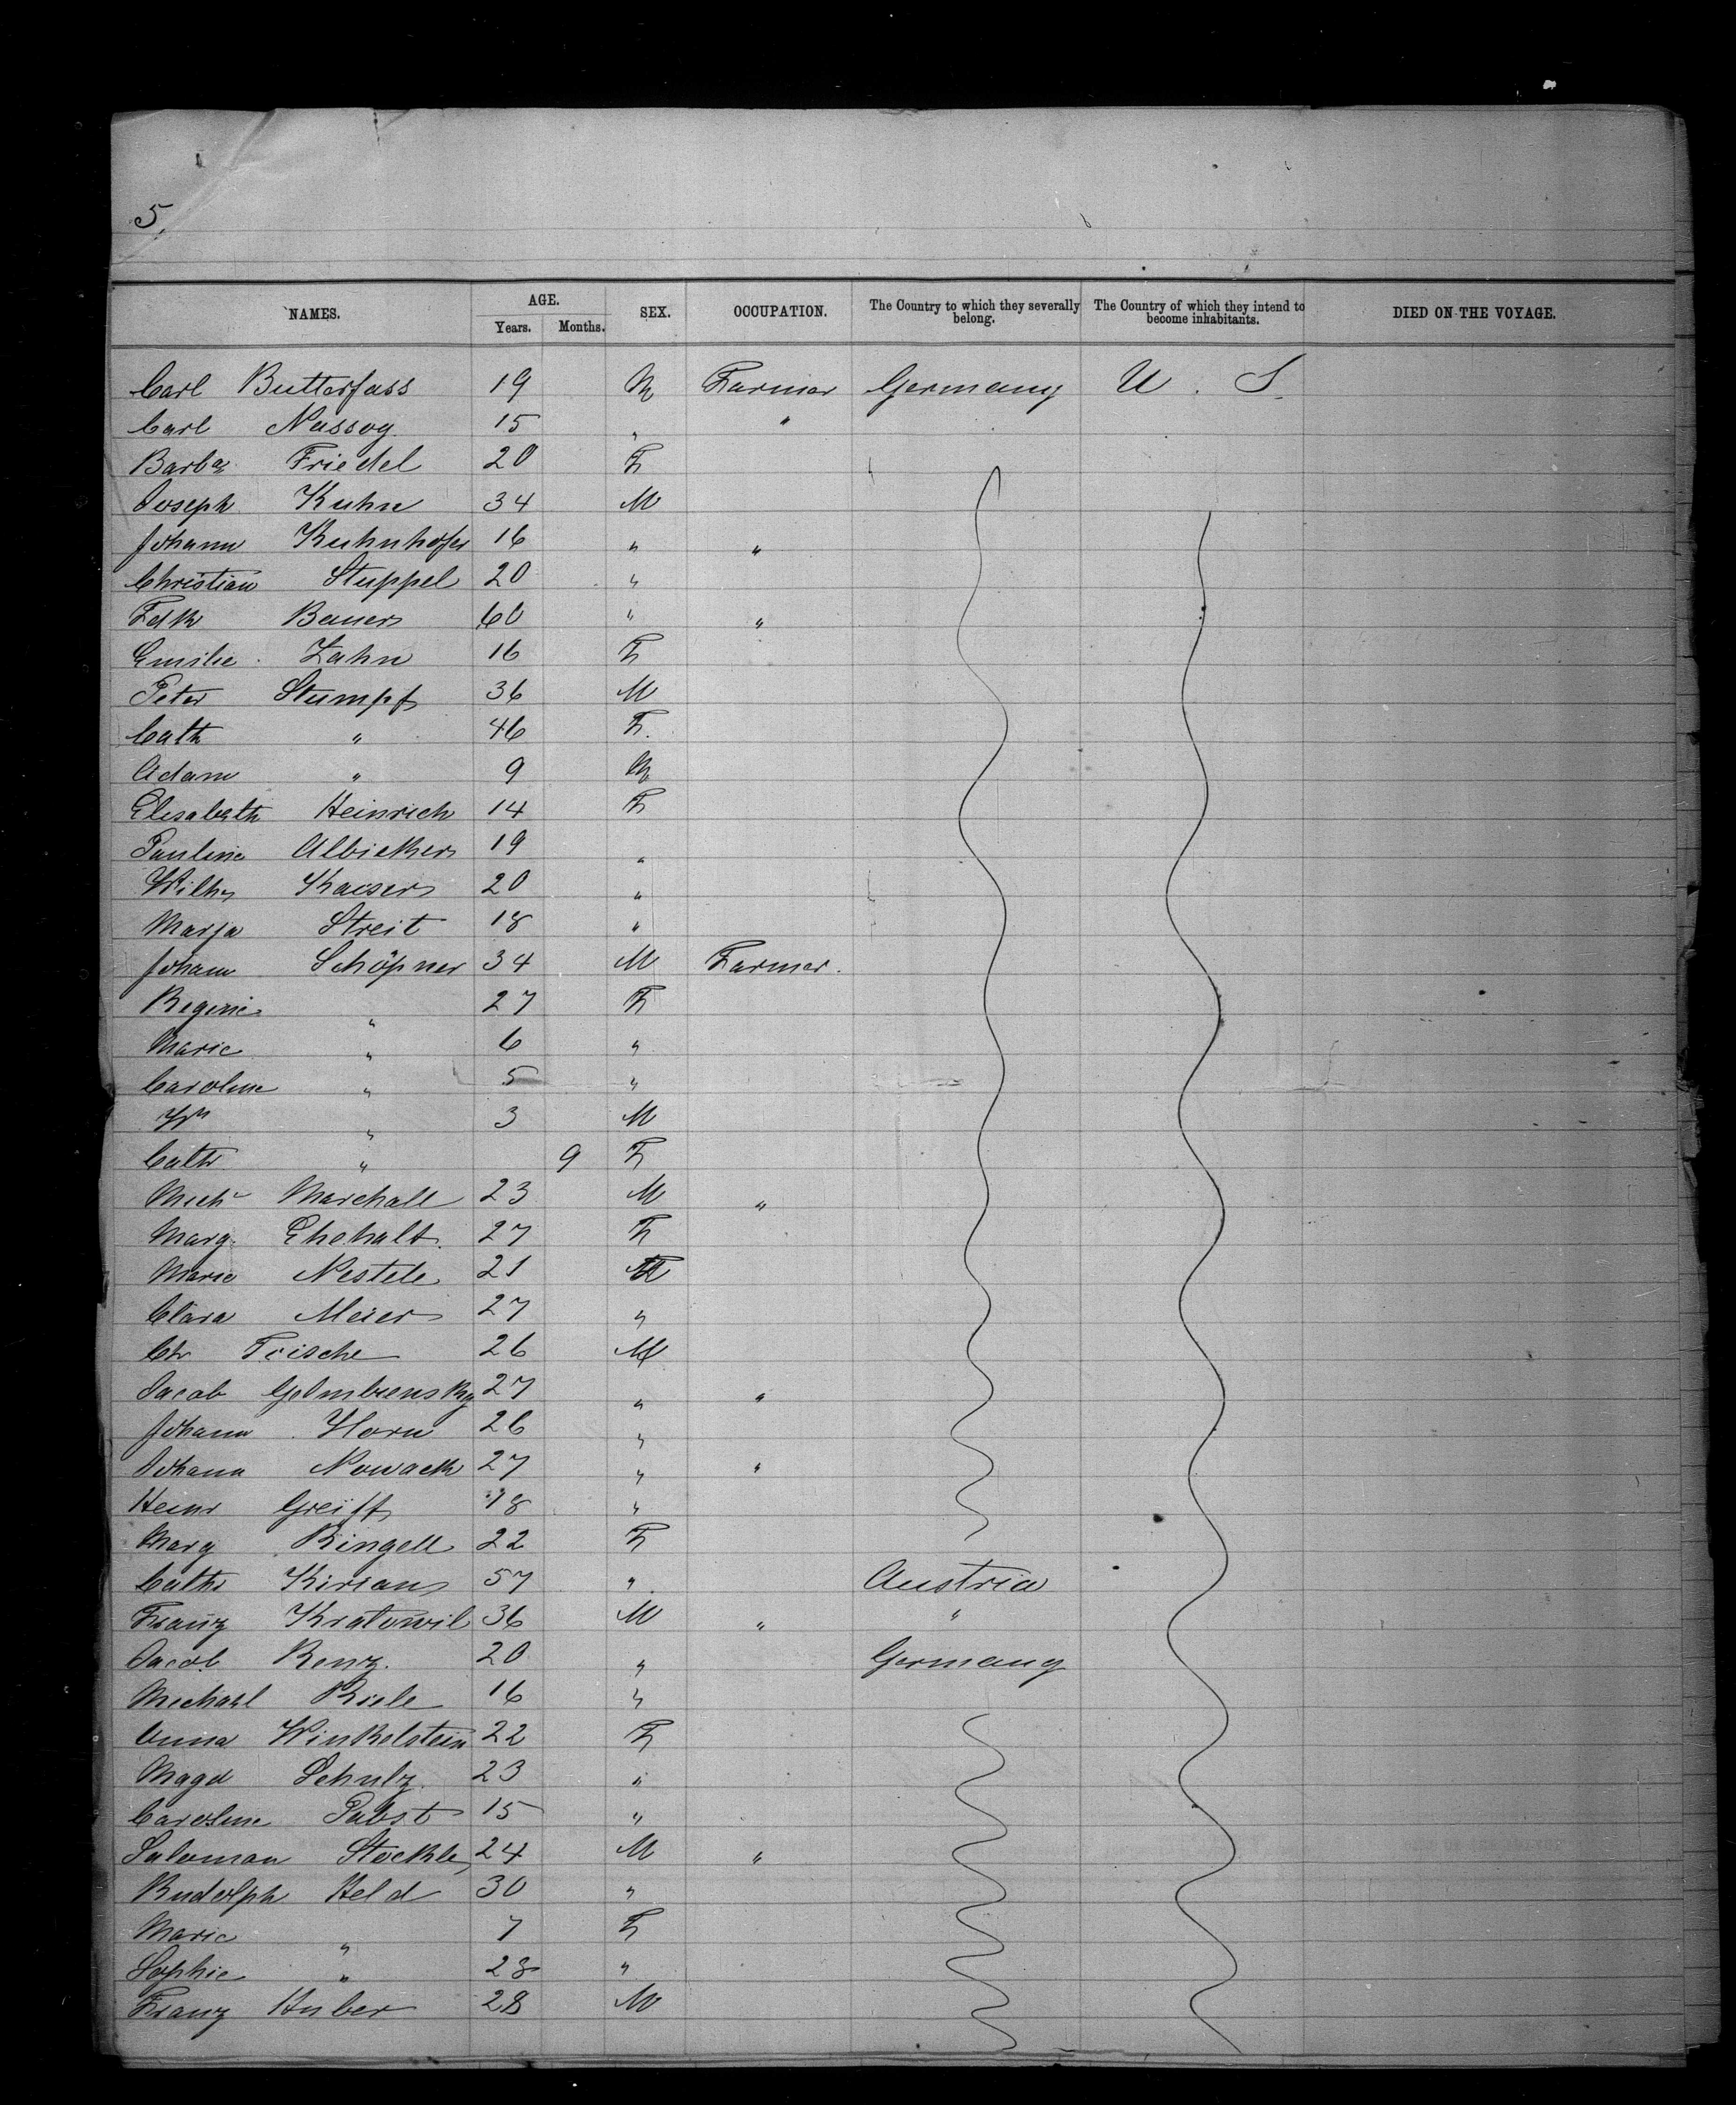 5.
NAMES. AGE. SEX. OCCUPATION. The Country to which they severally belong. The Country of which they intend to become inhabitants. DIED ON THE VOYAGE.
Years. Months.
Carl Butterfass 19 M Farmer Germany U. S.
Carl Nassoy 15 " "
Barba Friedel 20 F
Joseph Kuhn 34 M
Johann Kuhnhofer 16 " "
Christian Stuppel 20 "
Fdk Bauer 60 " "
Emilie Zahn 16 F
Peter Stumpf 36 M
Cath " 46 F
Adam " 9 M
Elisabeth Heinrich 14 F
Pauline Albicker 19 "
Wilhe Kaiser 20 "
Marja Streit 18 "
Johann Schöpner 34 M Farmer.
Regine " 27 F
Marie " 6 "
Caroline " 5 "
Wm " 3 M
Cath " 9 F
Mich Marchall 23 M "
Marg. Ehehalt 27 F
Marie Nestele 21 F
Clara Meier 27 "
Chr Frische 26 M
Jacob Golmbiensky 27 " "
Johann Horn 26 "
Johann Nowack 27 " "
Heinr Greiff 18 "
Marg Ringell 22 F
Cath Kirians 57 " Austria
Franz Kratowil 36 M " "
Jacob Renz. 20 " Germany
Michael Riele 16 "
Anna Winkelstein 22 F
Magd Schulz 23 "
Caroline Pabst 15 "
Saloman Stockle 24 M "
Rudolph Held 30 "
Marie " 7 F
Sophie " 28 "
Franz Huber 28 M